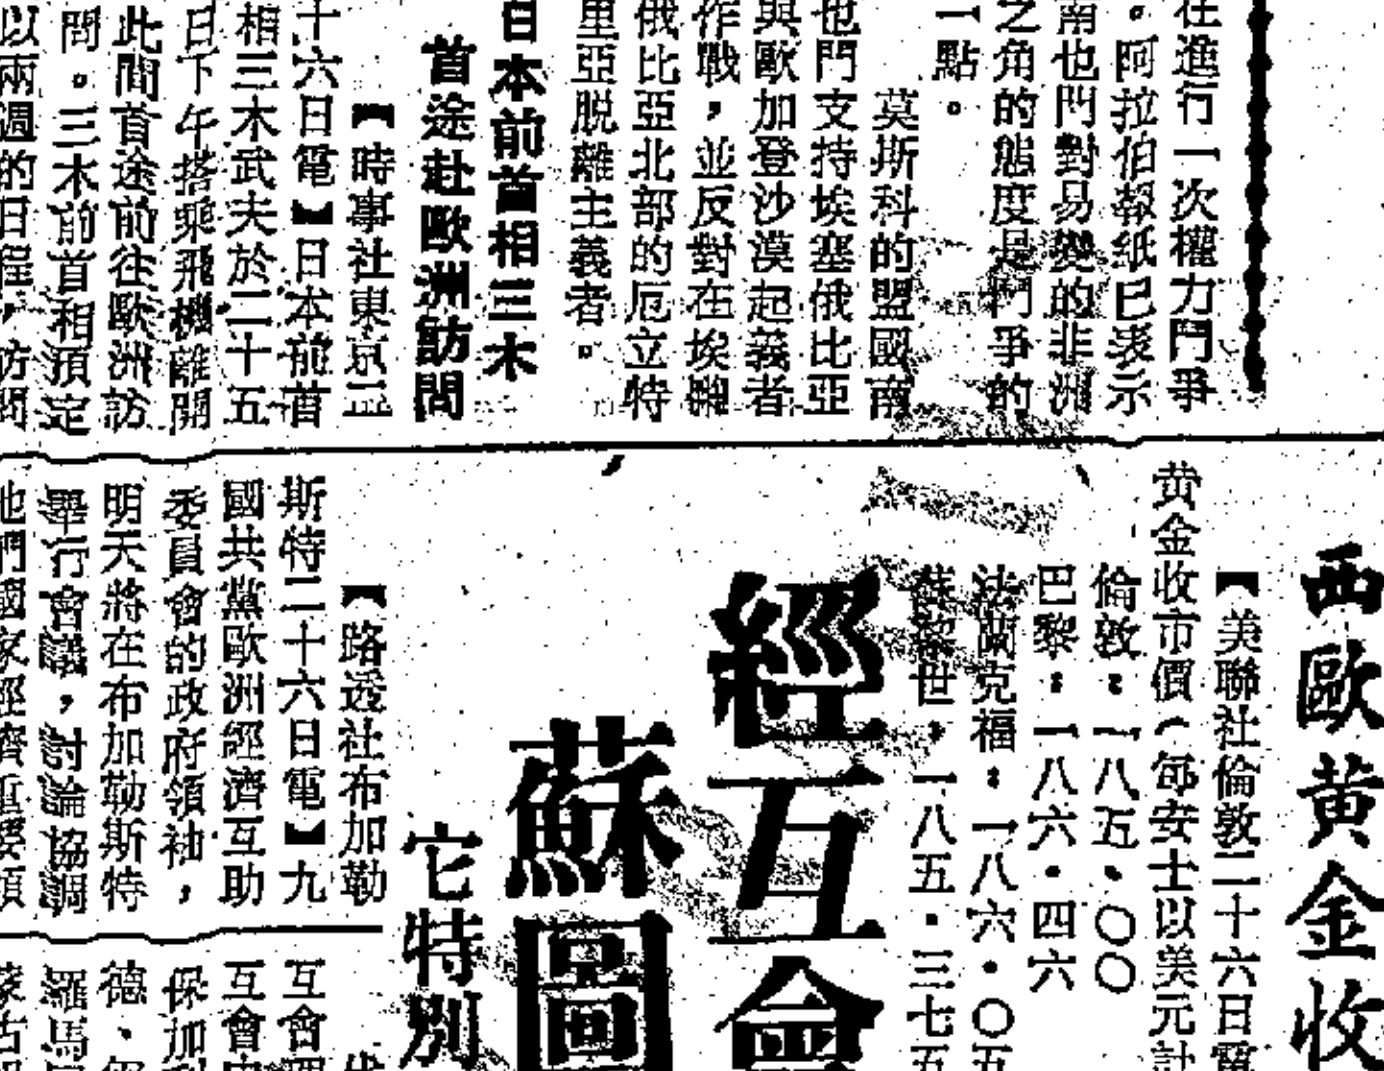 在進行一次權力鬥爭
。阿拉伯報紙已表示
南也門對易變的非洲
之角的態度是鬥爭的
一點。
莫斯科的盟國南
也門支持埃塞俄比亞
與歐加登沙漠起義者
作戰，並反對在埃
俄比亞北部的厄立特
里亞脱離主義者。
日本前首相三木
首途赴歐洲訪問
【時事社東京二
十六日電】日本前首
相三木武夫於二十五
日下午搭乘飛機離開
此間首途前往歐洲訪
問。三木前首相預定
以兩週的日程，訪問
西歐黃金收
【美聯社倫敦二十六日電
黄金收市價（每安士以美元計
倫敦：一八五·〇〇
巴黎：一八六·四六
法蘭克福：一八六·〇五
蘇黎世：一八五·三七五
經互會
蘇圖
它特別
【路透社布加勒
斯特二十六日電】九
國共黨歐洲經濟互助
委員會的政府領袖，
明天將在布加勒斯特
舉行會議，討論協調
他們國家經濟重要領
互會理
互會
保加利
德、
羅馬
蒙古